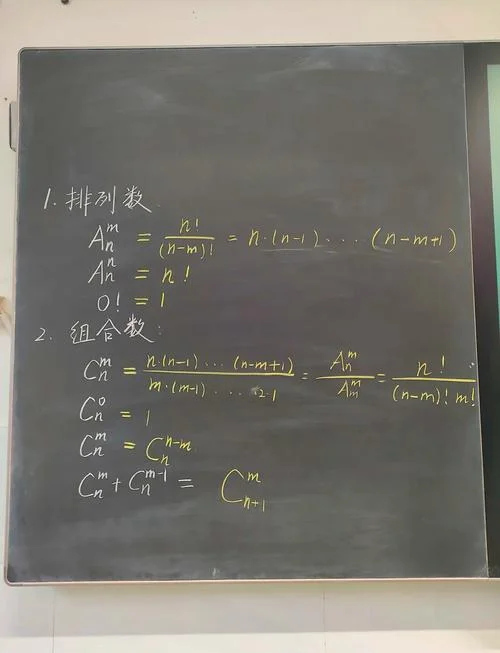 1. 排列数
A_n^m = n!/(n-m)! = n·(n-1)···(n-m+1)
A_n^n = n!
0! = 1
2. 组合数:
C_n^m = n·(n-1)···(n-m+1)/m·(m-1)···2·1 = A_n^m/A_m^m = n!/(n-m)!m!
C_n^0 = 1
C_n^m = C_n^{n-m}
C_n^m + C_n^{m-1} = C_{n+1}^m